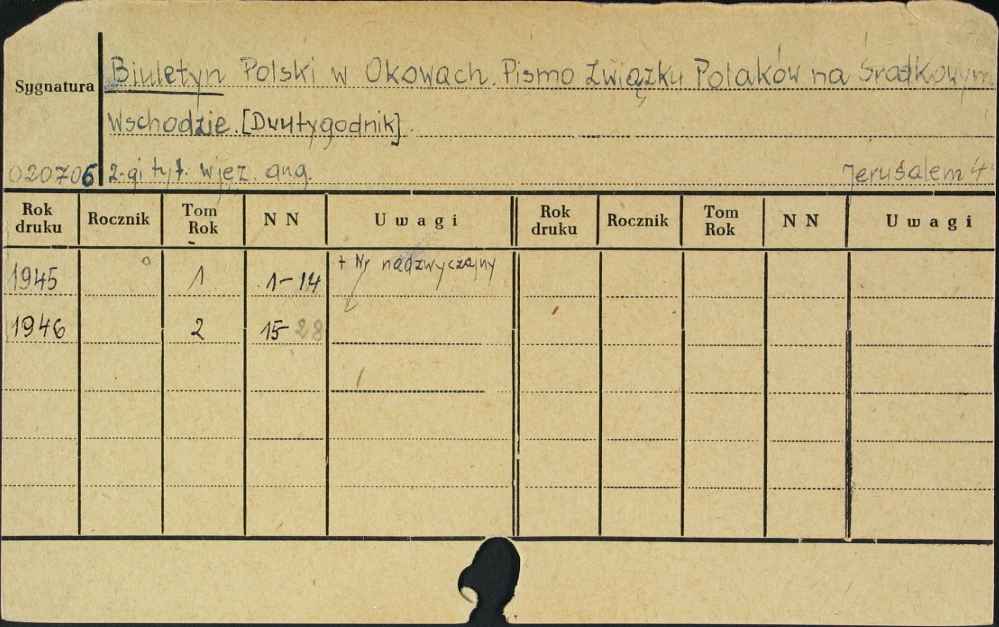 Biuletyn Polski w Okowach. Pismo Związku Polaków na Środkowym
Sygnatura
Wschodzie. [Dwutygodnik].
020706 2-gi tyt. w jęz. ang. Jerusalem 4
Rok druku Rocznik Tom Rok N N Uwagi Rok druku Rocznik Tom Rok N N Uwagi
1945 1 1-14 + Nr nadzwyczajny
1946 2 15-28